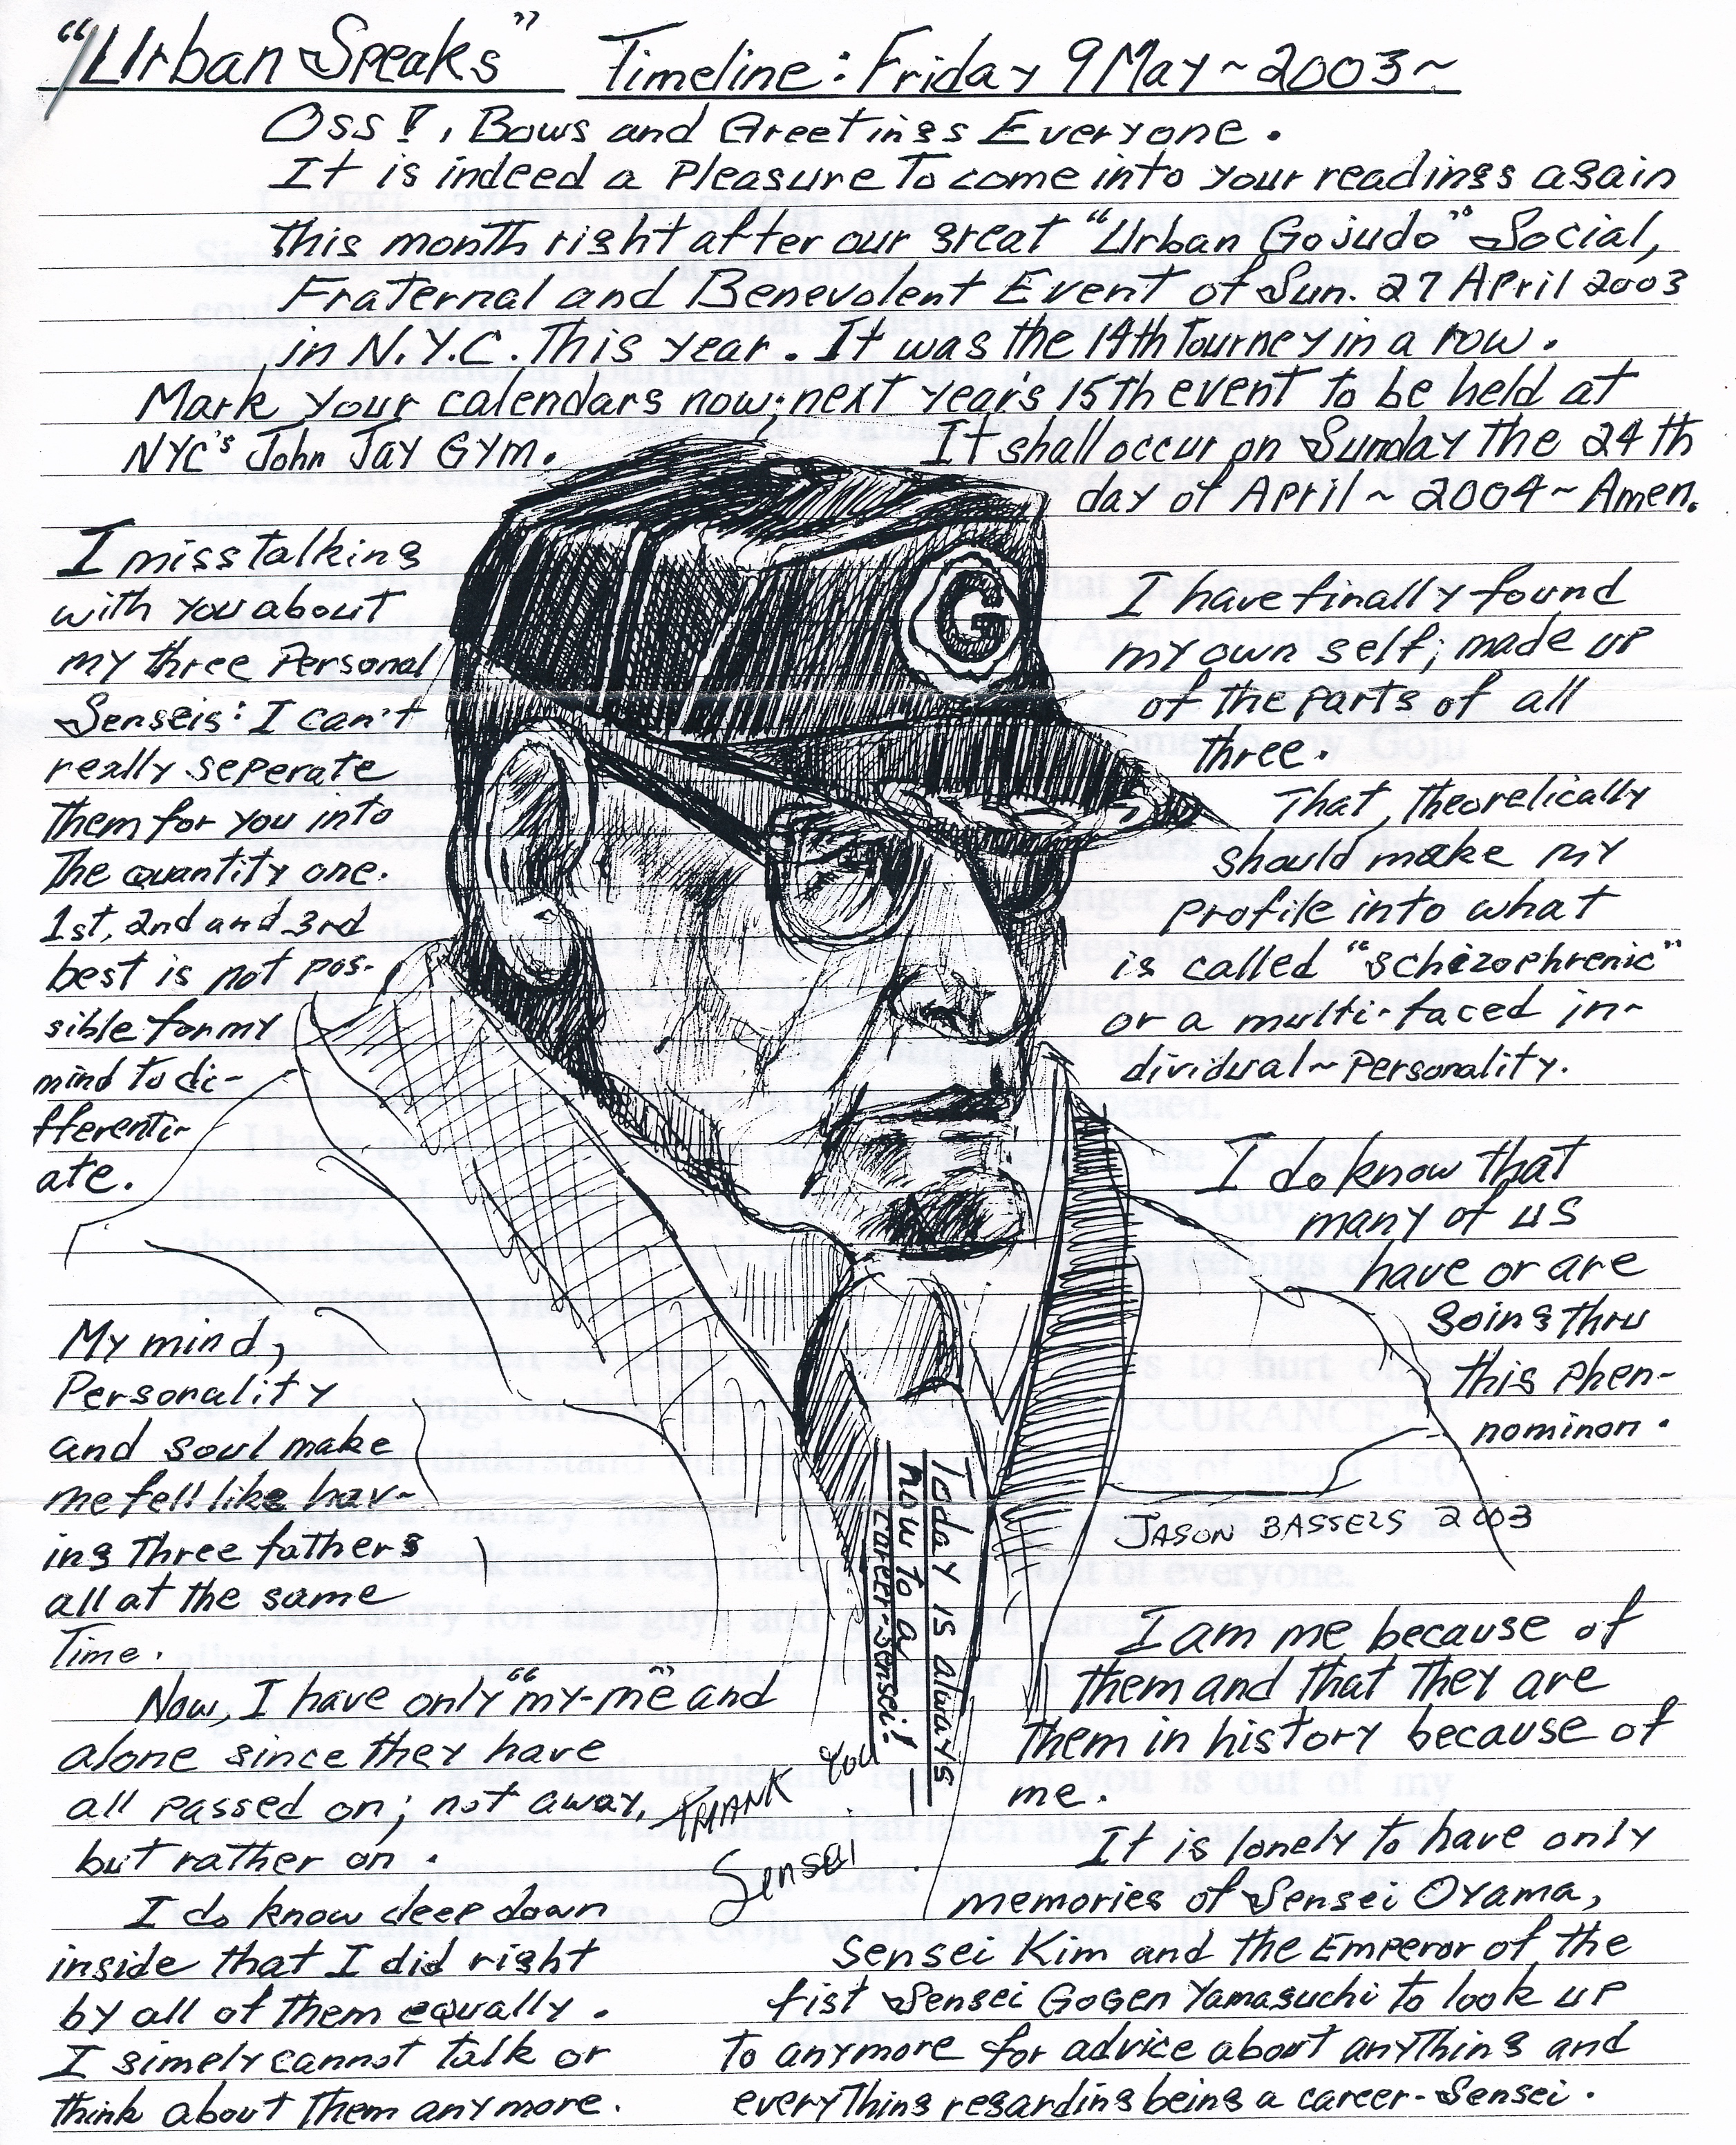 "Urban Speaks" Timeline: Friday 9 May ~ 2003 ~
Oss!, Bows and Greetings Everyone.
It is indeed a Pleasure To come into your readings again
this month right after our great "Urban Gojudo" Social,
Fraternal and Benevolent Event of Sun. 27 April 2003
in N.Y.C. This year. It was the 14th Tourney in a row.
Mark your calendars now; next year's 15th event to be held at
NYC's John Jay Gym. It shall occur on Sunday the 24th
day of April ~ 2004 ~ Amen.
I miss talking
with you about
my three Personal
Senseis: I can't
really seperate
them for you into
The quantity one.
1st, 2nd and 3rd
best is not pos-
sible for my
mind to di-
fferenti-
ate.
My mind,
Personality
and soul make
me fell like hav-
ing three fathers
all at the same
Time.
Now, I have only "my-me" and
alone since they have
all passed on; not away,
but rather on.
I do know deep down
inside that I did right
by all of them equally.
I simely cannot talk or
think about them anymore.
I have finally found
my own self; made up
of the parts of all
three.
That, theorelically
should make my
profile into what
is called "schizophrenic"
or a multi-faced in-
dividual ~ Personality.
I do know that
many of us
have or are
going thru
this phen-
nominon.
JASON BASSELS 2003
I am me because of
them and that they are
them in history because of
me.
It is lonely to have only
memories of Sensei Oyama,
Sensei Kim and the Emperor of the
fist Sensei Gogen Yamaguchi to look up
to anymore for advice about anything and
everything regarding being a career-Sensei.
Today is always
now to a
career-sensei!
THANK YOU
Sensei
G